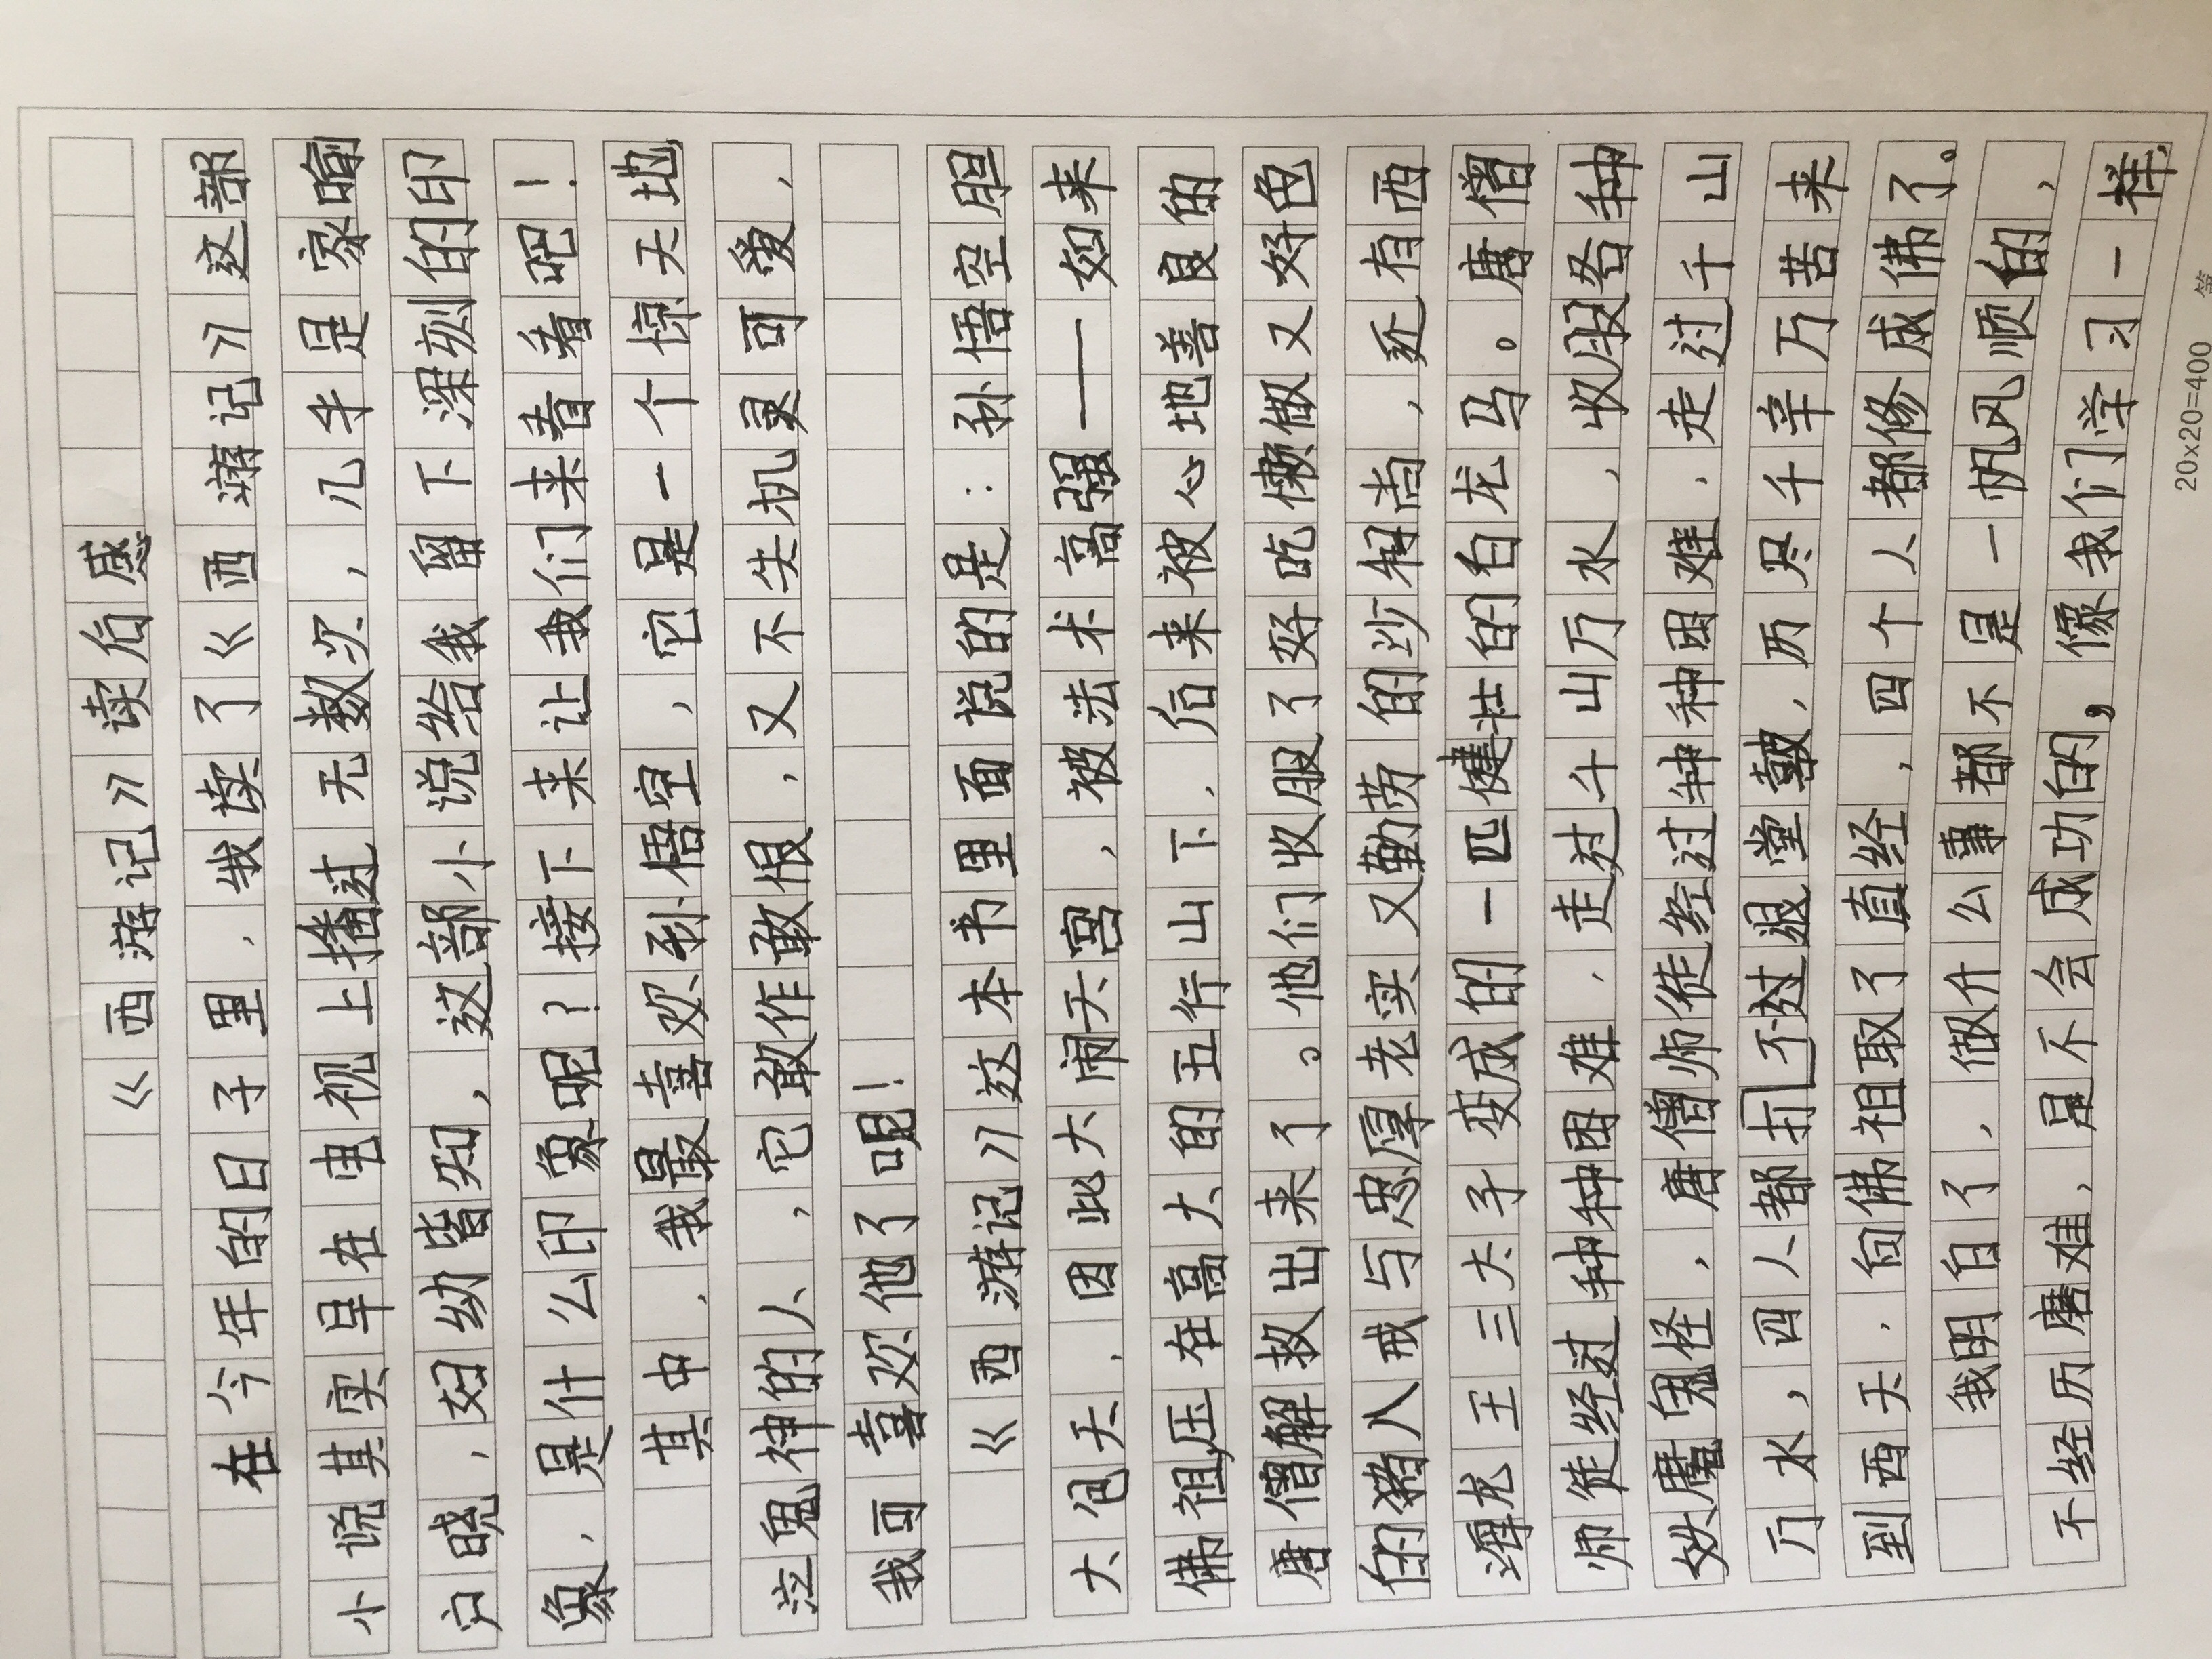 《西游记》读后感
在今年的日子里，我读了《西游记》这部
小说其实早在电视上播过无数次，几乎是家喻
户晓，妇幼皆知，这部小说给我留下深刻的印
象，是什么印象呢？接下来让我们来看看吧！
其中，我最喜欢孙悟空，它是一个惊天地
泣鬼神的人，它敢作敢恨，又不失机灵可爱，
我可喜欢他了呢！
《西游记》这本书里面说的是：孙悟空胆
大包天，因此大闹天宫，被法术高强——如来
佛祖压在高大的五行山下，后来被心地善良的
唐僧解救出来了。他们收服了好吃懒做又好色
的猪八戒与忠厚老实又勤劳的沙和尚，还有西
海龙王三太子变成的一匹健壮的白龙马。唐僧
师徒经过种种困难，走过千山万水，收服各种
妖魔鬼怪，唐僧师徒经过种种困难，走过千山
万水，四人都打不过退堂鼓，历尽千辛万苦来
到西天，向佛祖取了直经，四个人都修成佛了。
我明白了，做什么事都不是一帆风顺的，
不经历磨难，是不会成功的，像我们学习一样，
20x20=400 第